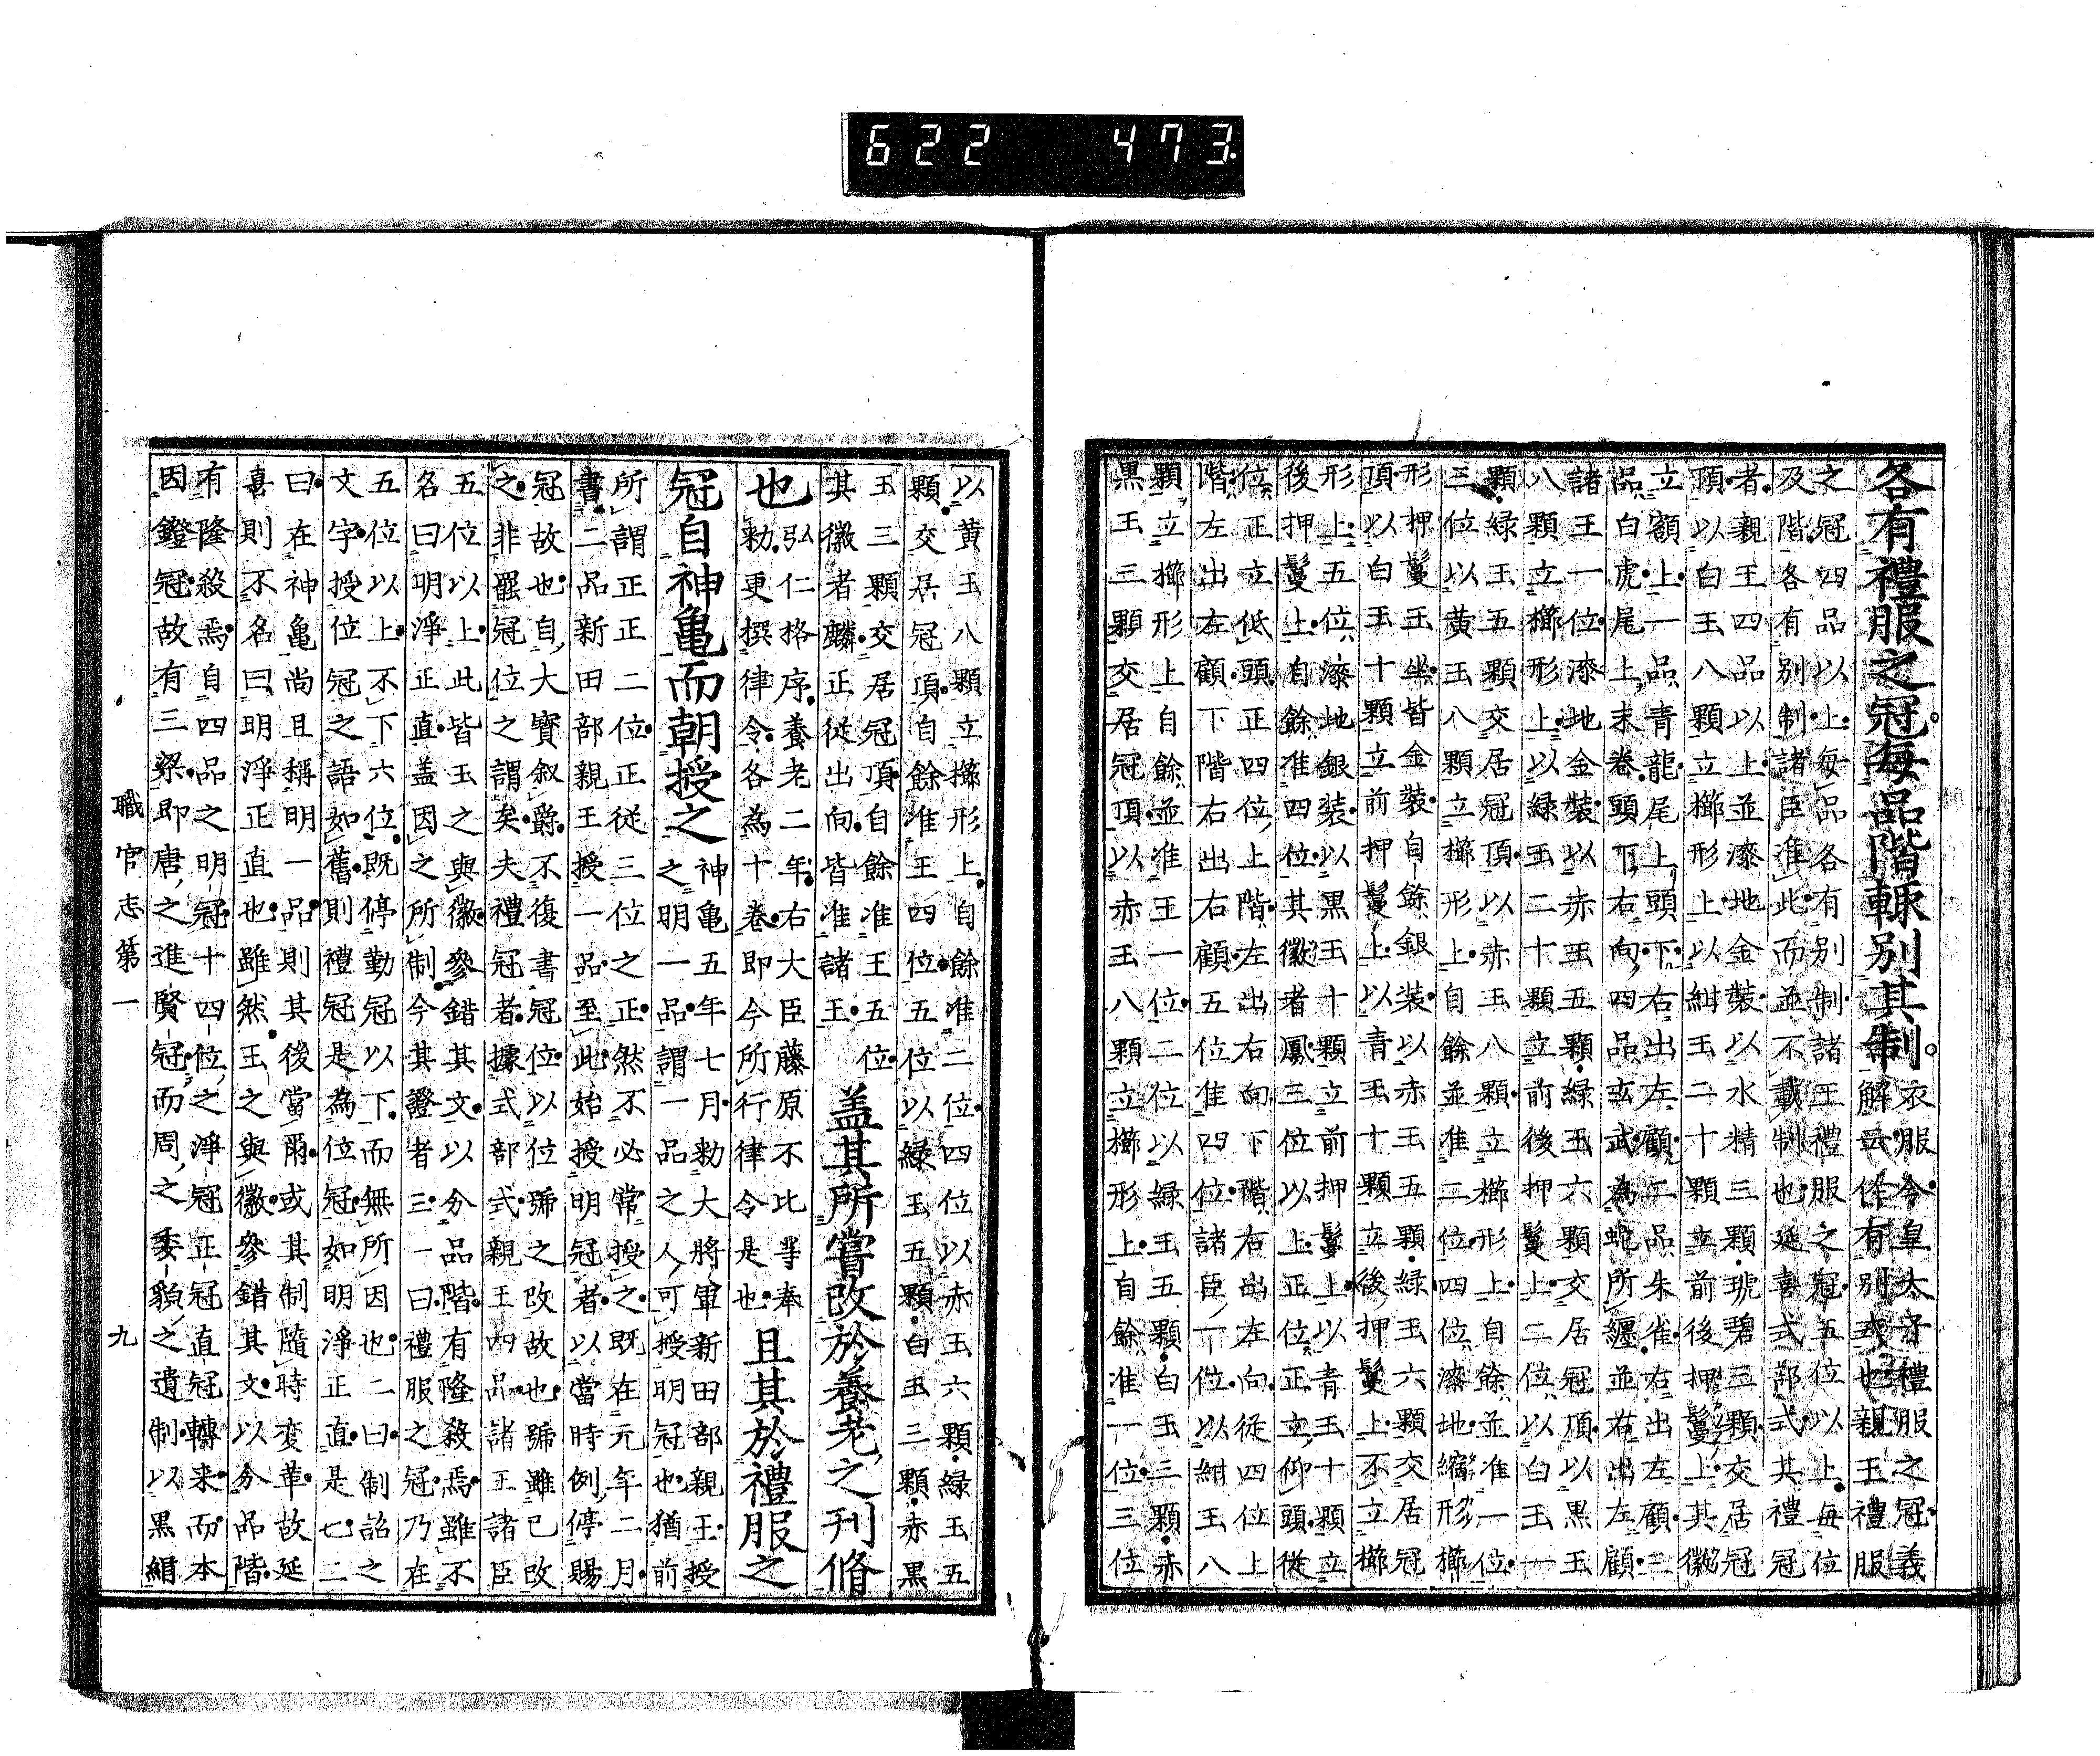 622 473
各有禮服之冠每品階輙別其制
衣服令皇太子禮服之冠義
解云作有別式也親王禮服
之冠四品以上每品各有別制諸王禮服之冠五位以上每位
及階各有別制諸臣准此而並不載制也延喜式部式其禮冠
者親王四品以上並漆地金裝以水精三顆琥碧三顆交居冠
頂以白玉八顆立櫛形上以紺玉二十顆立前後押鬘上其徽
立額上一品青龍尾上頭下右出左顧二品朱雀右出左顧三
品白虎尾上末卷頭下右向四品玄武為蛇所纏並右出左顧
諸王一位漆地金裝以赤玉五顆綠玉六顆交居冠頂以黑玉
八顆立櫛形上以綠玉二十顆立前後押鬘上二位以白玉一
顆綠玉五顆交居冠頂以赤玉八顆立櫛形上自餘並准一位
三位以黃玉八顆立櫛形上自餘並准二位四位漆地縮形櫛
形押鬘玉坐皆金裝自餘銀裝以赤玉五顆綠玉六顆交居冠
頂以白玉十顆立前押鬘上以青玉十顆立後押鬘上不立櫛
形上五位漆地銀裝以黑玉十顆立前押鬘上以青玉十顆立
後押鬘上自餘准四位其徽者鳳三位以上正位正立仰頭從
位正立低頭正四位上階左出右向下階右出左向從四位上
階左出左顧下階右出右顧五位准四位諸臣一位以紺玉八
顆立櫛形上自餘並准王一位二位以綠玉五顆白玉三顆赤
黑玉三顆交居冠頂以赤玉八顆立櫛形上自餘准一位三位
以黃玉八顆立櫛形上自餘准二位四位以赤玉六顆綠玉五
顆交居冠頂自餘准王四位五位以綠玉五顆白玉三顆赤黑
玉三顆交居冠頂自餘准王五位
其徽者麟正從出向皆准諸王
蓋其所嘗改於養老之刊脩
也
弘仁格序養老二年右大臣藤原不比等奉
勅更撰律令各為十卷即今所行律令是也
且其於禮服之
冠自神亀而朝授之
神亀五年七月勅大將軍新田部親王授
之明一品謂一品之人可授明冠也猶前
所謂正正二位正從三位之正然不必常授之既在元年二月
書二品新田部親王授一品至此始授明冠者以當時例停賜
冠故也自大寶叙爵不復書冠位以位號之改故也號雖已改
之非罷冠位之謂矣夫禮冠者據式部式親王四品諸王諸臣
五位以上此皆玉之與徽參錯其文以分品階有隆殺焉雖不
名曰明淨正直蓋因之所制今其證者三一曰禮服之冠乃在
五位以上不下六位既停勤冠以下而無所因也二曰制詔之
文字授位冠之語如舊則禮冠是為位冠如明淨正直是七二
曰在神亀尚且稱明一品則其後當爾或其制隨時変革故延
喜則不名曰明淨正直也雖然玉之與徽參錯其文以分品階
有隆殺焉自四品之明冠十四位之淨冠正冠直冠轉来而本
因鐙冠故有三梁即唐之進賢冠而周之委貌之遺制以黑絹
職官志第一
九